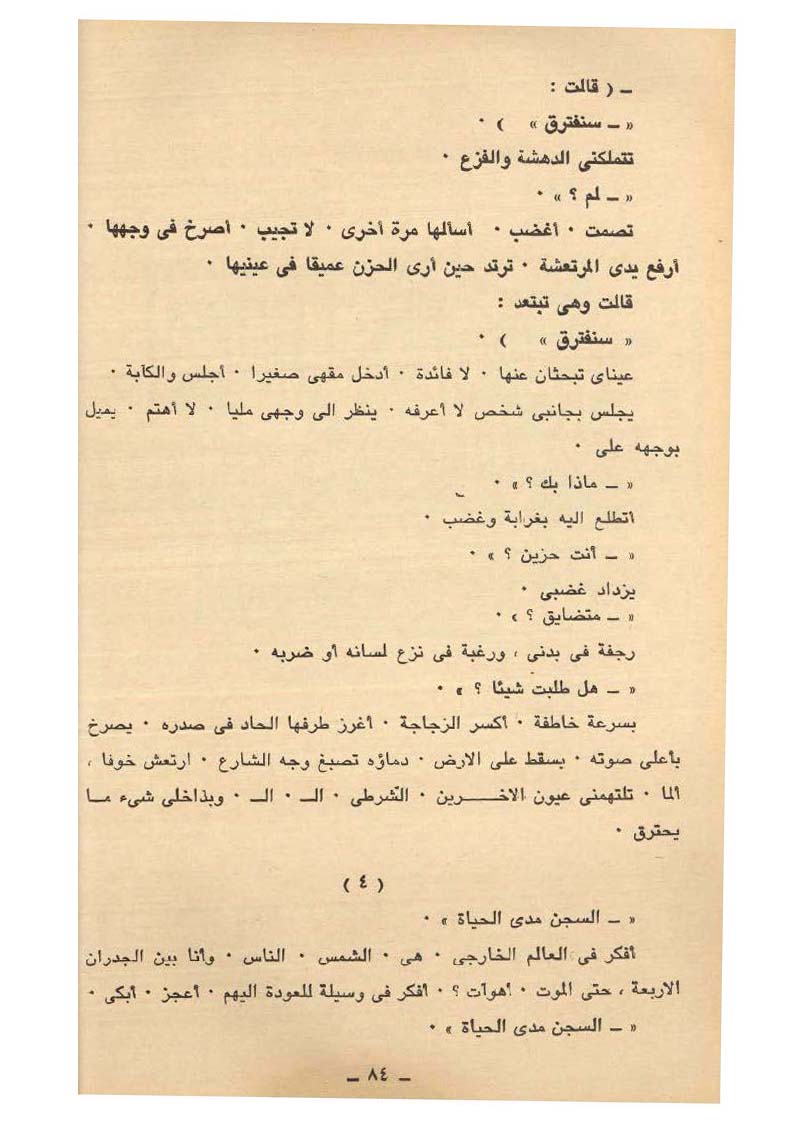 ـ ( قالت :
« ـ سنفترق » ) ٠
تتملكنى الدهشة والفزع ٠
« ـ لم ؟ » ٠
تصمت ٠ أغضب ٠ أسألها مرة أخرى ٠ لا تجيب ٠ أصرخ فى وجهها ٠
أرفع يدى المرتعشة ٠ ترتد حين أرى الحزن عميقا فى عينيها ٠
قالت وهى تبتعد :
« سنفترق » ) ٠
عيناى تبحثان عنها ٠ لا فائدة ٠ أدخل مقهى صغيرا ٠ أجلس والكآبة ٠
يجلس بجانبى شخص لا أعرفه ٠ ينظر الى وجهى مليا ٠ لا أهتم ٠ يميل
بوجهه على ٠
« ـ ماذا بك ؟ » ٠
أتطلع اليه بغرابة وغضب ٠
« ـ أنت حزين ؟ » ٠
يزداد غضبى ٠
« ـ متضايق ؟ » ٠
رجفة فى بدنى ، ورغبة فى نزع لسانه أو ضربه ٠
« ـ هل طلبت شيئا ؟ » ٠
بسرعة خاطفة ٠ أكسر الزجاجة ٠ أغرز طرفها الحاد فى صدره ٠ يصرخ
بأعلى صوته ٠ يسقط على الارض ٠ دماؤه تصبغ وجه الشارع ٠ ارتعش خوفا ،
ألما ٠ تلتهمنى عيون الاخـــــرين ٠ الشرطى ٠ الـ ٠ الـ ٠ وبداخلى شىء مـا
يحترق ٠
( ٤ )
« ـ السجن مدى الحياة » ٠
أفكر فى العالم الخارجى ٠ هى ٠ الشمس ٠ الناس ٠ وأنا بين الجدران
الاربعة ، حتى الموت ٠ أهوآت ؟ ٠ أفكر فى وسيلة للعودة اليهم ٠ أعجز ٠ أبكى ٠
« ـ السجن مدى الحياة » ٠
ـ ٨٤ ـ